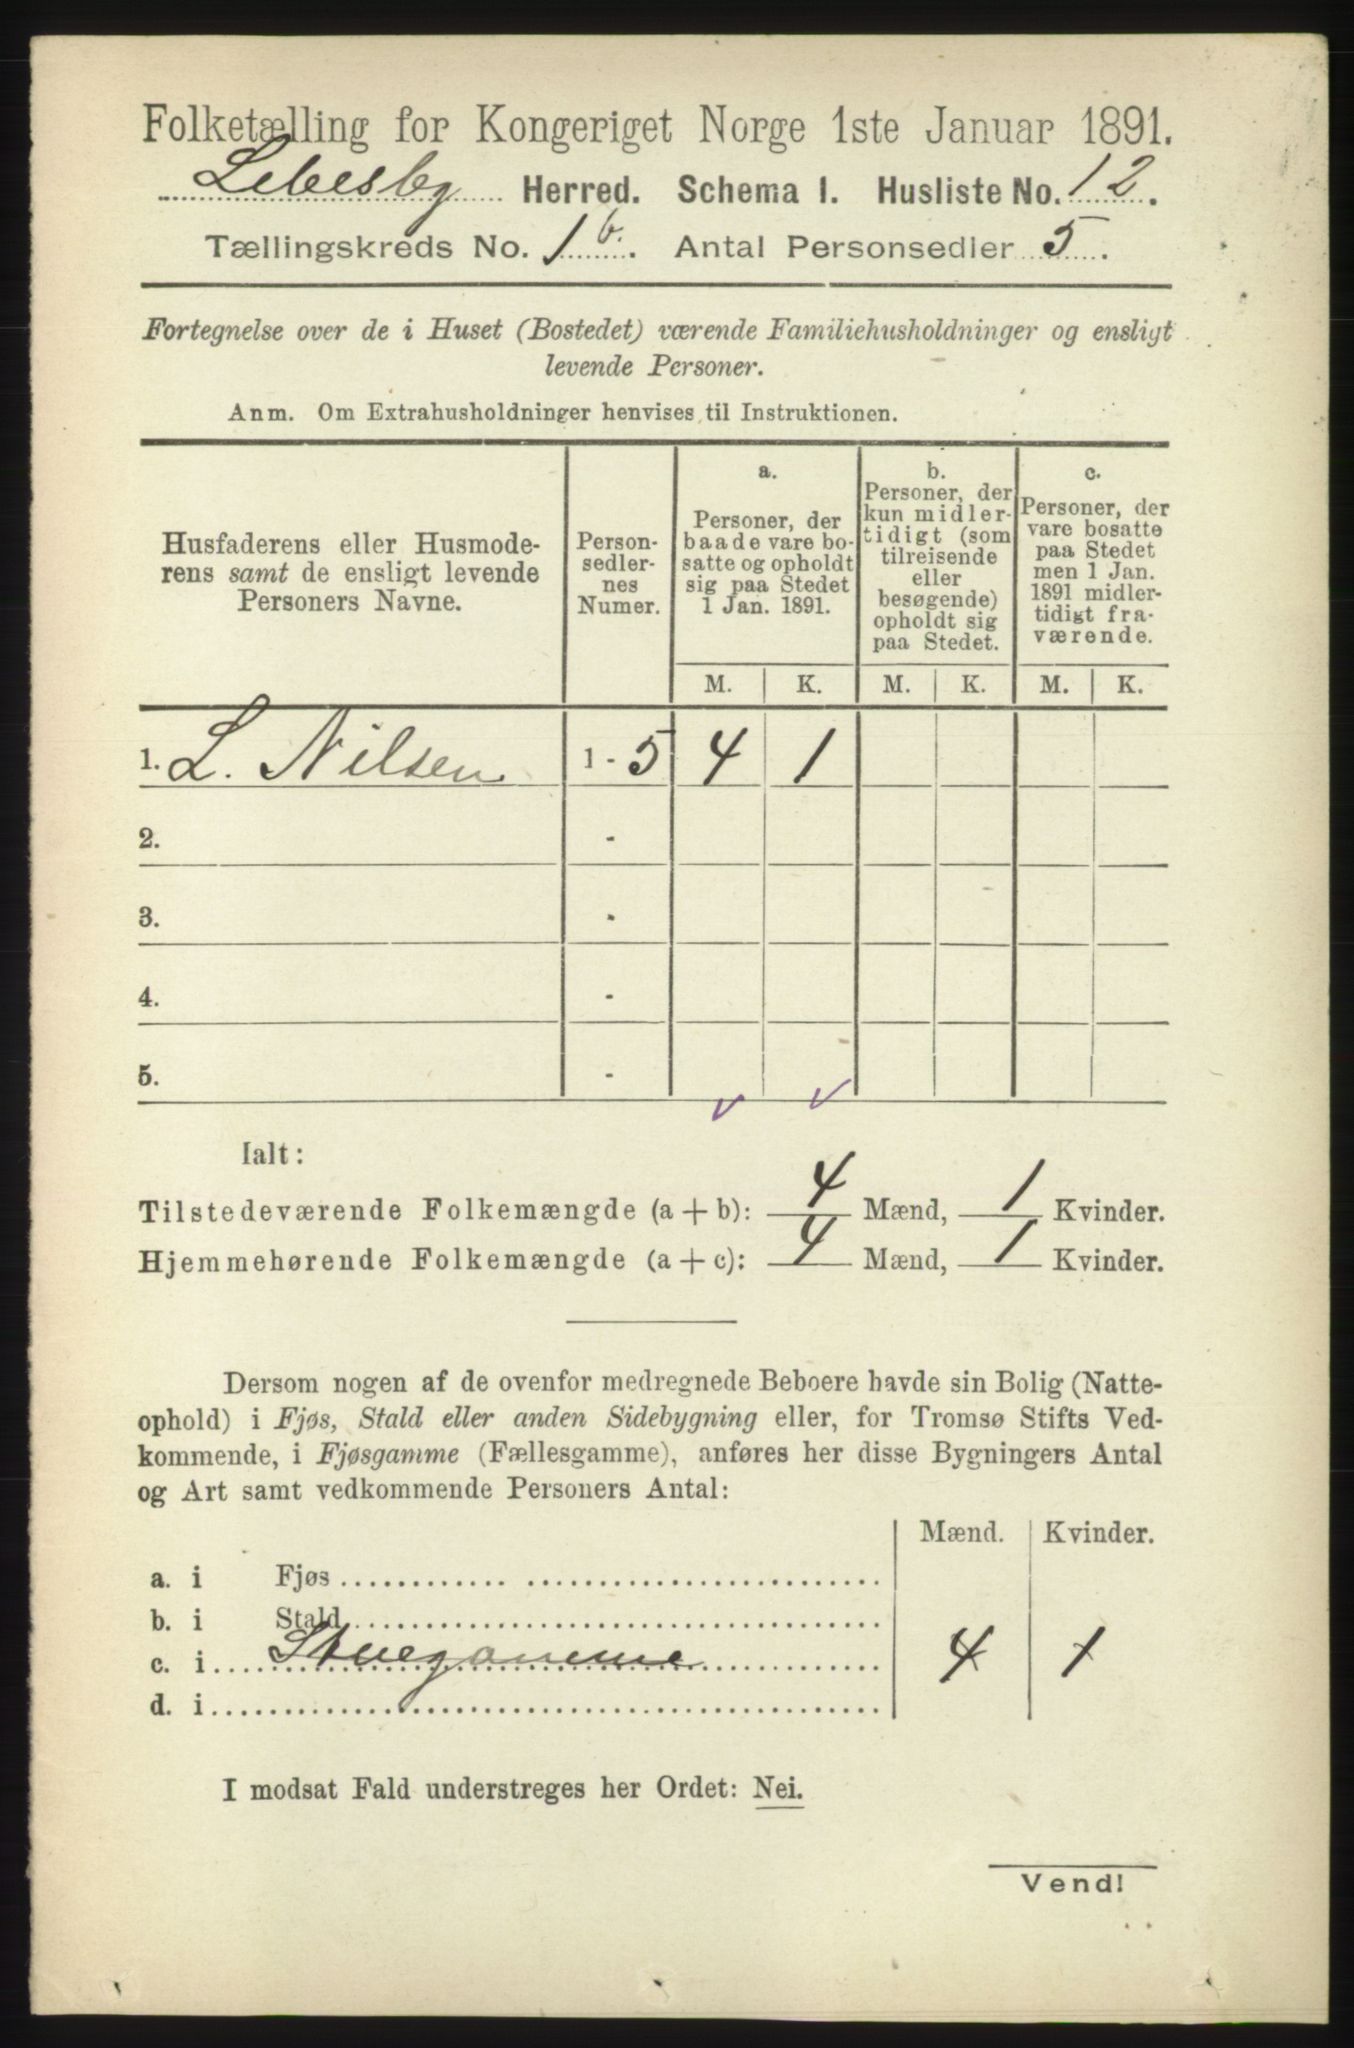 Folketælling for Kongeriget Norge 1ste Januar 1891.
Lebesby Herred. Schema 1. Husliste No. 12.
Tællingskreds No. 1 b. Antal Personsedler 5.
Fortegnelse over de i Huset (Bostedet) værende Familiehusholdninger og ensligt
levende Personer.
Anm. Om Extrahusholdninger henvises til Instruktionen.
Husfaderens eller Husmode-
rens samt de ensligt levende
Personers Navne.
Person-
sedler-
nes
Numer.
a.
Personer, der
baade vare bo-
satte og opholdt
sig paa Stedet
1 Jan. 1891.
b.
Personer, der
kun midler-
tidigt (som
tilreisende
eller
besøgende)
opholdt sig
paa Stedet.
c.
Personer, der
vare bosatte
paa Stedet
men 1 Jan.
1891 midler-
tidigt fra-
værende.
M. K. M. K. M. K.
1. L. Nilsen 1 - 5 4 1
2. -
3. -
4. -
5. -
Ialt:
Tilstedeværende Folkemængde (a + b): 4 Mænd, 1 Kvinder.
Hjemmehørende Folkemængde (a + c): 4 Mænd, 1 Kvinder.
Dersom nogen af de ovenfor medregnede Beboere havde sin Bolig (Natte-
ophold) i Fjøs, Stald eller anden Sidebygning eller, for Tromsø Stifts Ved-
kommende, i Fjøsgamme (Fællesgamme), anføres her disse Bygningers Antal
og Art samt vedkommende Personers Antal:
Mænd. Kvinder.
a. i Fjøs
b. i Stald
c. i Stuegamme 4 1
d. i
I modsat Fald understreges her Ordet: Nei.
Vend!